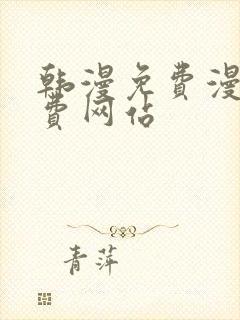 韩漫免费漫
费网站
青萍